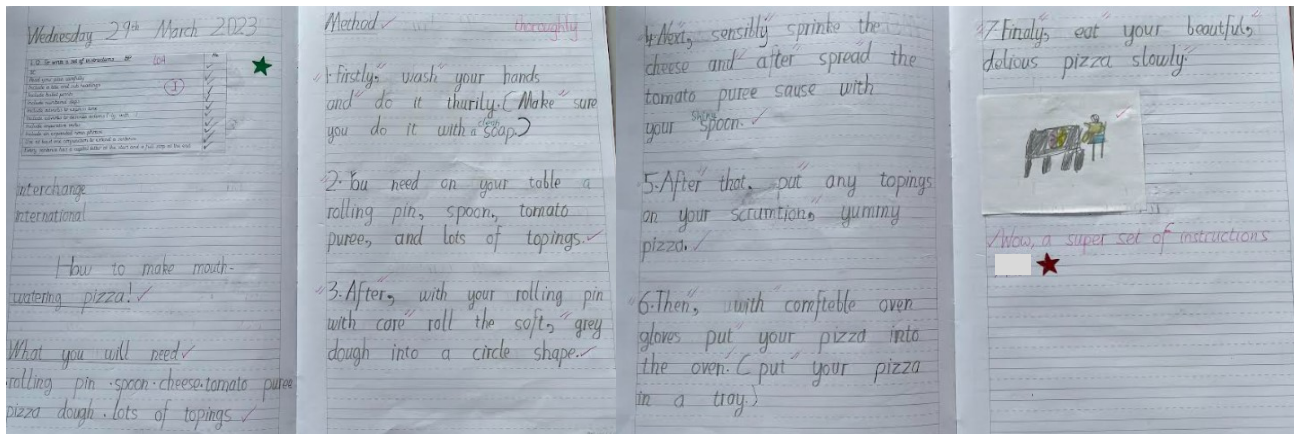 Wednesday 29th March 2023
interchange
international
How to make mouth-
watering pizza!
What you will need
rolling pin · spoon · cheese · tomato puree
pizza dough · lots of topings
Method
thoroughly
1. firstly, wash your hands
and do it thurily. (Make sure
you do it with a clean soap.)
2. You need on your table a
rolling pin, spoon, tomato
puree, and lots of topings.
3. After, with your rolling pin
with care roll the soft, grey
dough into a circle shape.
4. Next, sensibly sprinke the
cheese and after spread the
tomato puree sause with
your spoon.
5. After that, put any topings
on your scrumtion, yummy
pizza.
6. Then, with comfteble oven
gloves put your pizza into
the oven. (put your pizza
in a tray.)
7. Finaly, eat your beautful,
delious pizza slowly.
Wow, a super set of instructions